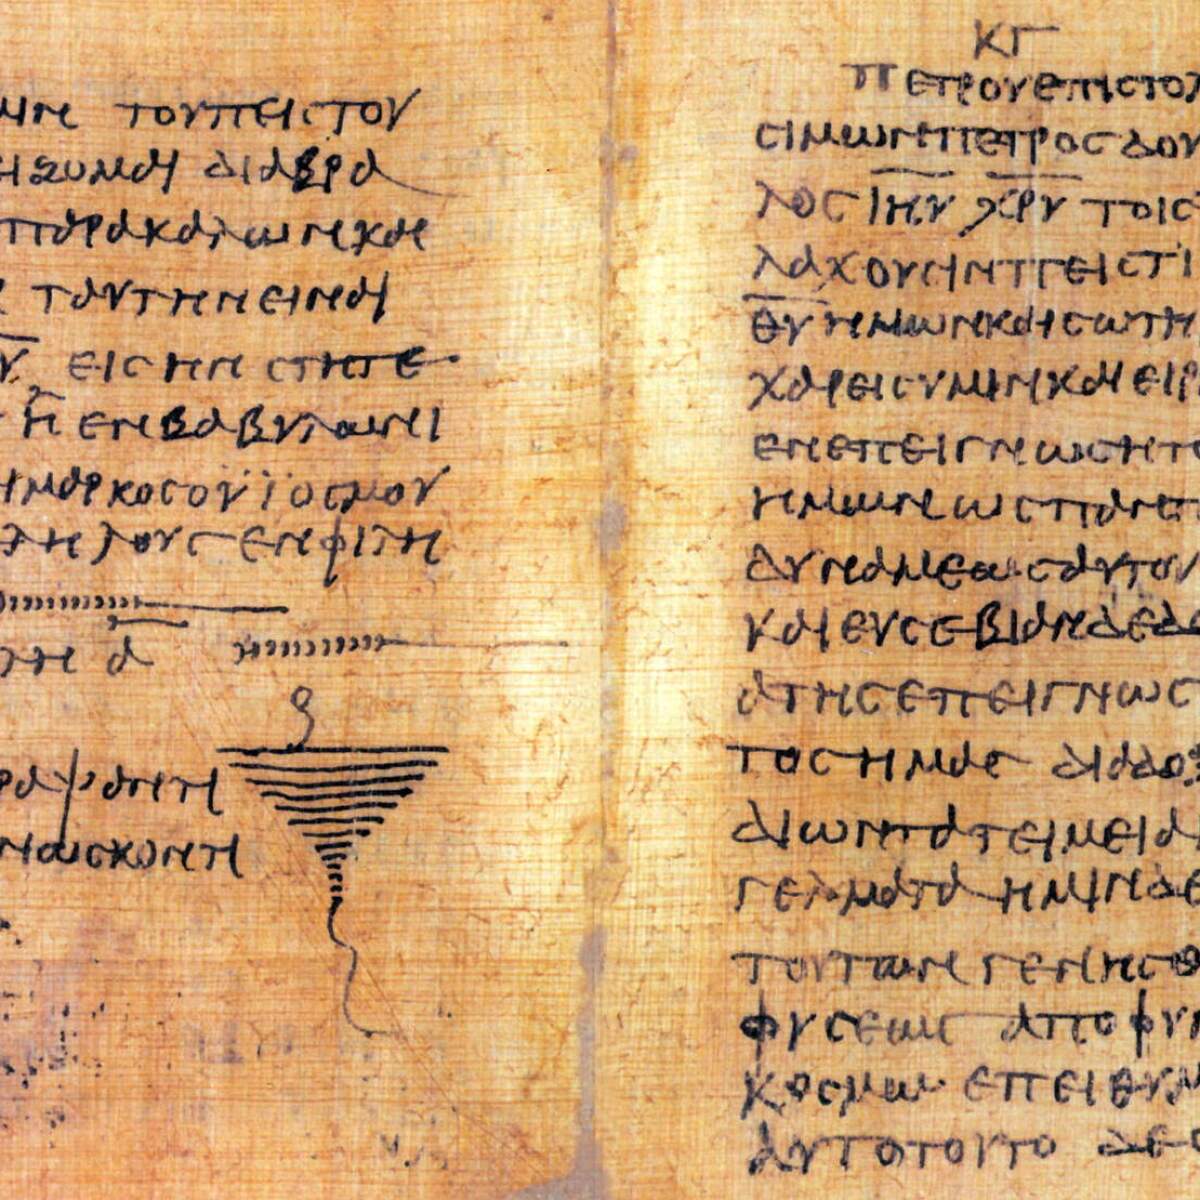 ΜΙΝ ΤΟΥΠΕΙϹΤΟΥ
ΙΖΟΜΑΙ ΔΙΑΒΡΑ
ΠΑΡΑΚΑΛΩΝΚΑΙ
ΤΑΥΤΗΝΕΙΝΑΙ
Υ̅ ΕΙϹΗΝ ϹΤΗΤΕ
Η ΕΝΒΑΒΥΛΩΝΙ
ΜΑΡΚΟϹΟΥΪΟϹΜΟΥ
ΛΗΛΟΥϹ ΕΝΦΙΛΗ
ΤΗ Α̅
ΡΑΨΑΝΤΙ
ΝΩϹΚΟΝΤΙ
ΚΓ
ΠΕΤΡΟΥΕΠΙϹΤΟΛ
ϹΙΜΩΝΠΕΤΡΟϹΔΟΥ
ΛΟϹ Ι̅Η̅Υ̅ Χ̅Ρ̅Υ̅ ΤΟΙϹ
ΛΑΧΟΥϹΙΝΠΕΙϹΤΙ
Θ̅Υ̅ΗΜΩΝΚΑΙϹΩΤΗ
ΧΑΡΕΙϹΥΜΙΝΚΑΙΕΙΡ
ΕΝΕΠΕΙΓΝΩϹΗΤΟ
ΗΜΩΝΩϹΠΑΝΤ
ΔΥΝΑΜΕΩϹΑΥΤΟΥ
ΚΑΙΕΥϹΕΒΙΑΝΔΕΔΕ
ΑΤΗϹΕΠΕΙΓΝΩϹ
ΤΟϹΗΜΑϹ ΔΙΑΔΟΞ
ΔΙΩΝΤΑΤΕΙΜΕΙΑ
ΓΕΛΜΑΤΑΗΜΙΝΔΕ
ΤΟΥΤΩΝΓΕΝΗϹΘ
ΦΥϹΕΩϹ ΑΠΟΦΥΓ
ΚΟϹΜΩ ΕΠΕΙΘΥΜ
ΑΥΤΟΤΟΥΤΟ ΔΕ